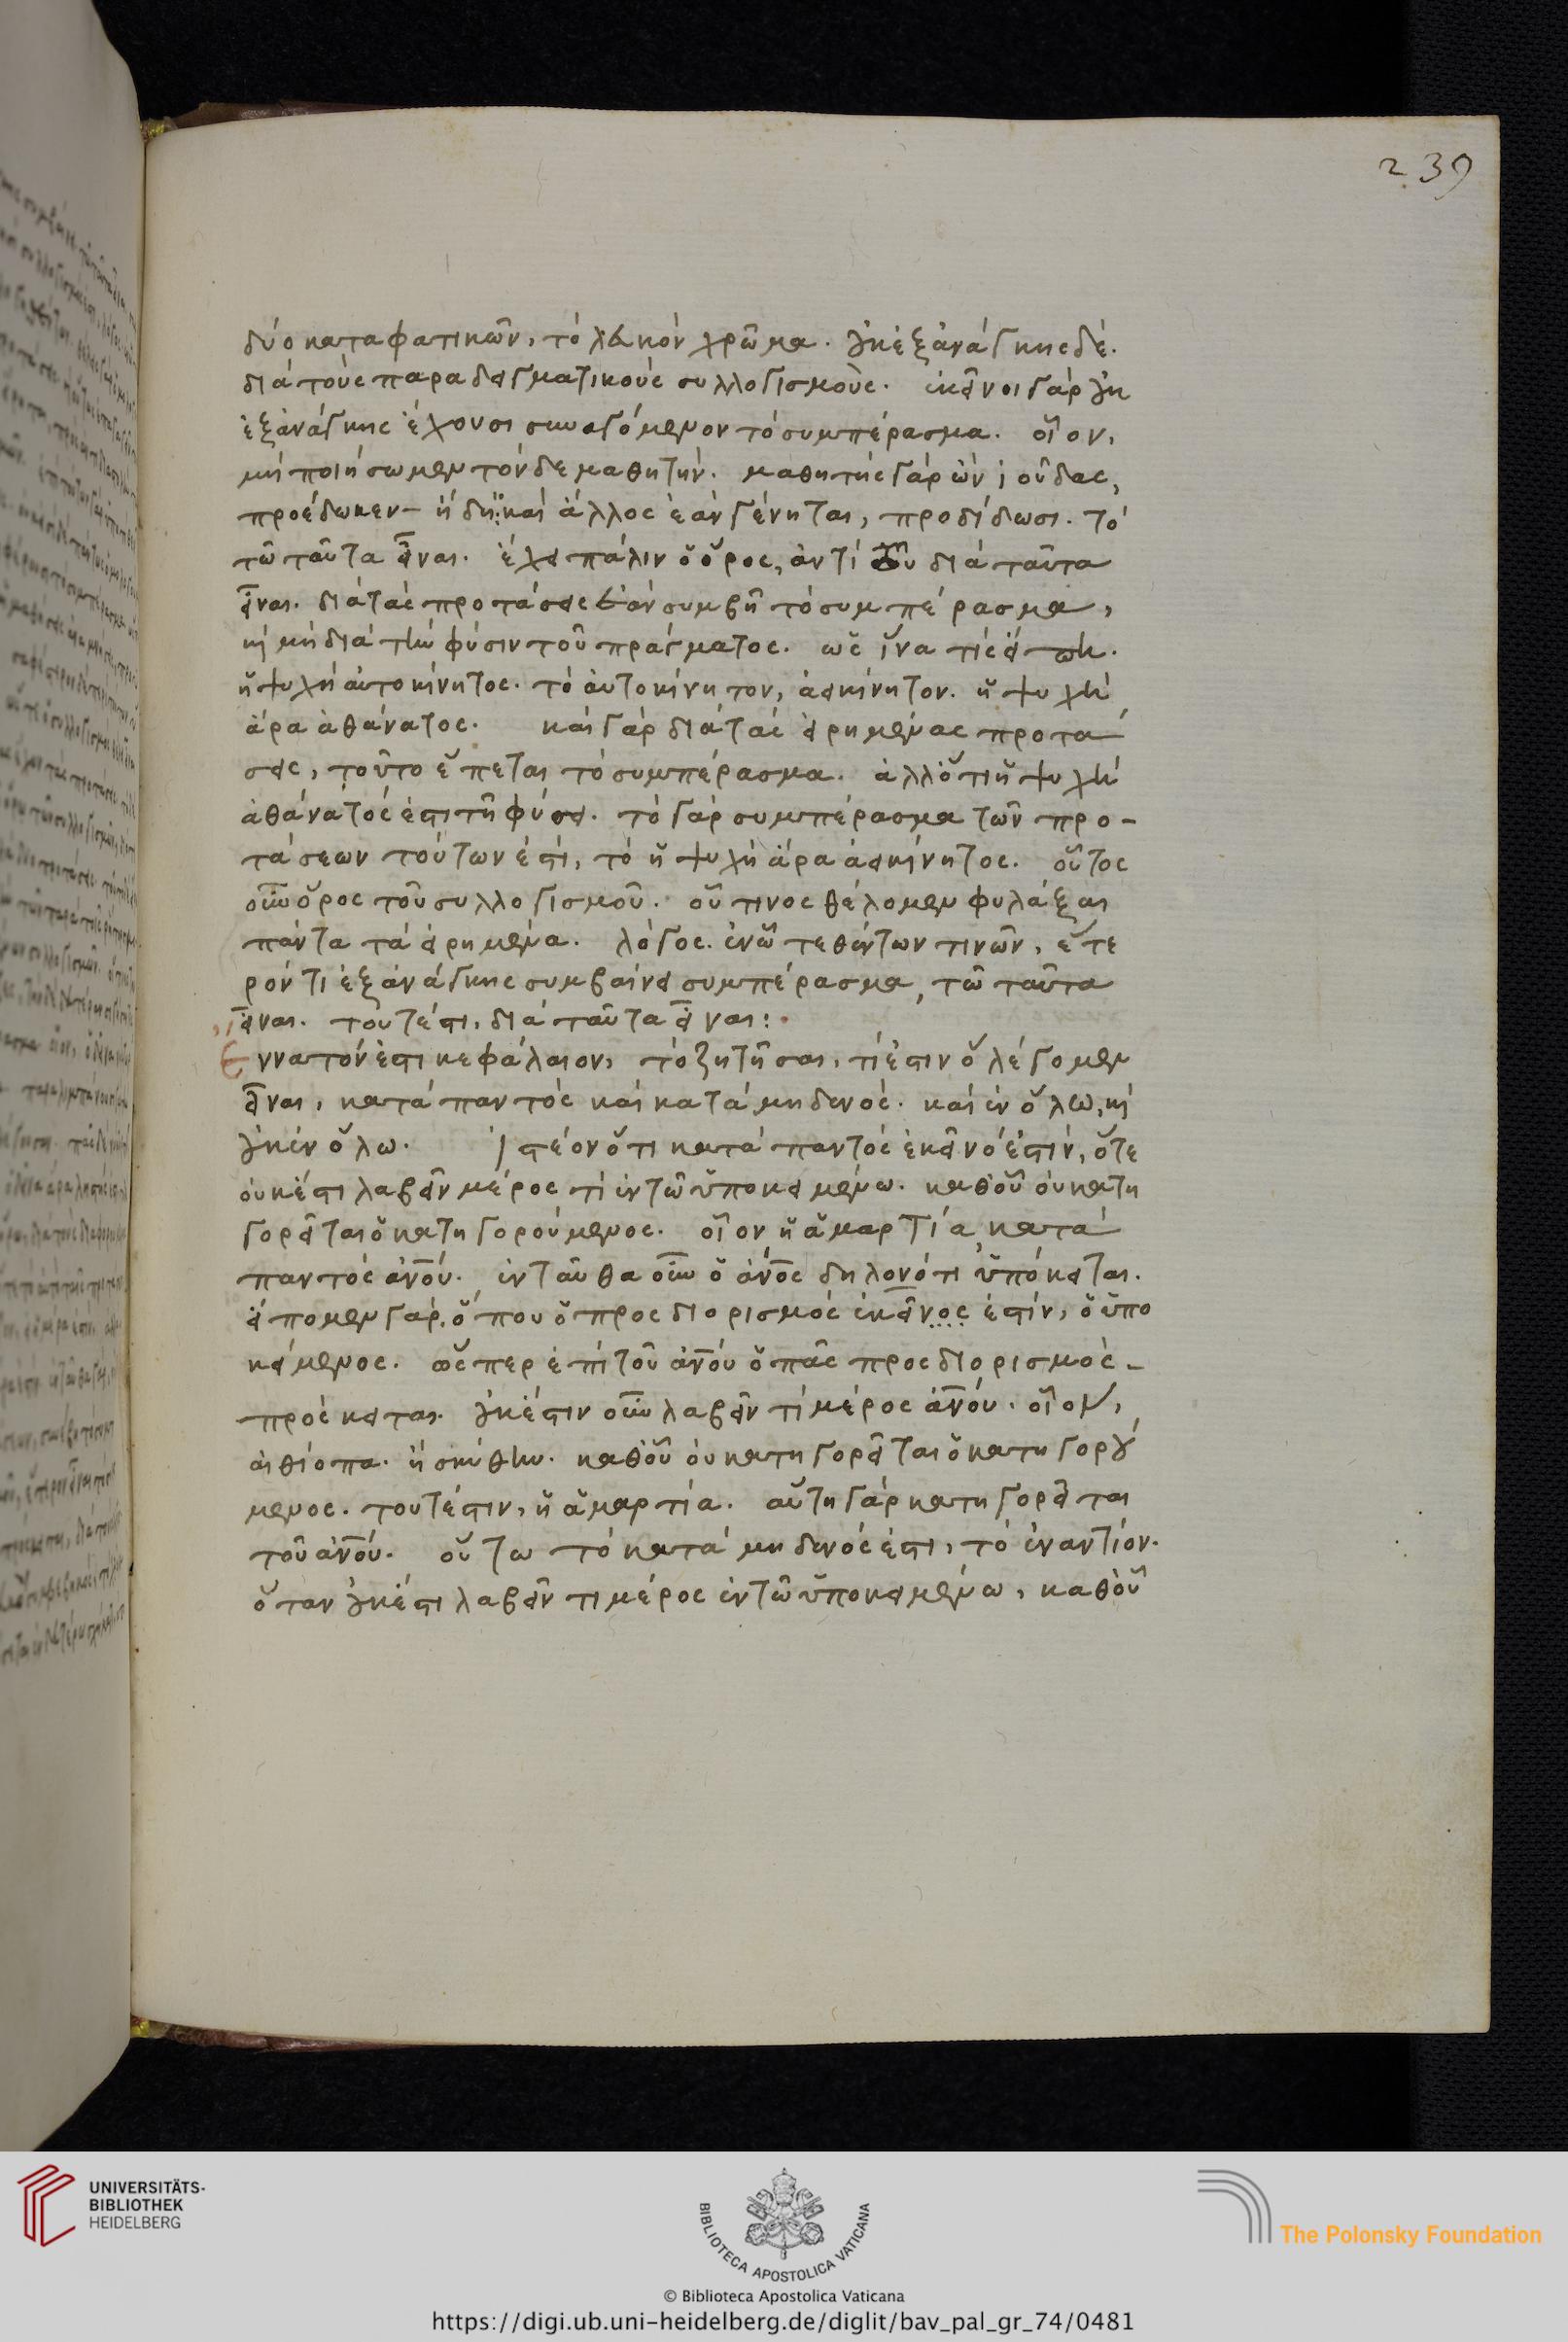 239
δύο καταφατικῶν, τὸ λευκὸν χρῶμα. οὐκ ἐξ ἀνάγκης δέ.
διὰ τοὺς παραδειγματικοὺς συλλογισμοὺς. ἐκεῖνοι γὰρ οὐκ
ἐξ ἀνάγκης ἔχουσι συναγόμενον τὸ συμπέρασμα. οἷον,
μὴ ποιήσωμεν τόνδε μαθητήν. μαθητὴς γὰρ ὢν ἰούδας,
προέδωκεν – ἤδη καὶ ἄλλος ἐὰν γένηται, προδίδωσι. τὸ
τῶ ταῦτα εἶναι. ἔχει πάλιν ὁ ὅρος, ἀντὶ τοῦ διὰ ταῦτα
εἶναι. διὰ τὰς προτάσεις ἐὰν συμβῆ τὸ συμπέρασμα,
κὶ μὴ διὰ τὴν φύσιν τοῦ πράγματος. ὡς ἵνα τὶς εἴπη.
ἡ ψυχὴ αὐτοκίνητος. τὸ αὐτοκίνητον, ἀεικίνητον. ἡ ψυχὴ
ἄρα ἀθάνατος. καὶ γὰρ διὰ τὰς εἰρημένας προτά
σεις, τοῦτο ἕπεται τὸ συμπέρασμα. ἀλλ' ὅτι ἡ ψυχὴ
ἀθάνατός ἐστι τῆ φύσει. τὸ γὰρ συμπέρασμα τῶν προ-
τάσεων τούτων ἐστὶ, τὸ ἡ ψυχὴ ἄρα ἀεικίνητος. οὗτος
οὖν ὅρος τοῦ συλλογισμοῦ. οὗ τινος θέλομεν φυλάξαι
πάντα τὰ εἰρημένα. λόγος. ἐν ὧ τεθέντων τινῶν, ἕτε
ρόν τι ἐξ ἀνάγκης συμβαίνει συμπέρασμα, τῶ ταῦτα
εἶναι. τοῦτέστι, διὰ ταῦτα εἶναι:·
Εννατόν ἐστι κεφάλαιον, τὸ ζητῆσαι, τί ἐστιν ὃ λέγομεν
εἶναι, κατὰ παντὸς καὶ κατὰ μηδενός. καὶ ἐν ὅλω, κὶ
οὐκ ἐν ὅλω. Ἰστέον ὅτι κατὰ παντὸς ἐκεῖνό ἐστιν, ὅτε
οὐκ ἔστι λαβεῖν μέρος τὶ ἐν τῶ ὑποκειμένω. καθ' οὗ οὐ κατη
γορεῖται ὁ κατηγορούμενος. οἷον ἡ ἁμαρτία κατὰ
παντὸς ἀνοῦ. ἐνταῦθα οὖν ὁ ἄνος δηλονότι ὑπόκειται.
εἴπομεν γὰρ, ὅπου ὁ προσδιορισμὸς ἐκεῖνος ἐστὶν, ὁ ὑπο
κείμενος. ὥσπερ ἐπὶ τοῦ ἀνοῦ ὁ πᾶς προσδιορισμὸς –
πρόσκειται. οὐκ ἔστιν οὖν λαβεῖν τὶ μέρος ἀνοῦ. οἷον,
αἰθίοπα. ἢ σκύθην. καθ' οὗ οὐ κατηγορεῖται ὁ κατηγορού
μενος. τουτέστιν, ἡ ἁμαρτία. αὕτη γὰρ κατηγορεῖται
τοῦ ἀνοῦ. οὕτω τὸ κατὰ μηδενός ἐστι, τὸ ἐναντίον.
ὅταν οὐκ ἔστι λαβεῖν τι μέρος ἐν τῶ ὑποκειμένω, καθ' οὗ
UNIVERSITÄTS-
BIBLIOTHEK
HEIDELBERG
BIBLIOTECA APOSTOLICA VATICANA
The Polonsky Foundation
© Biblioteca Apostolica Vaticana
https://digi.ub.uni-heidelberg.de/diglit/bav_pal_gr_74/0481